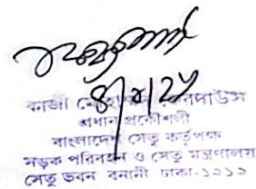 ৪/৪/২৫
কাজী মোহাম্মদ ফেরদাউস
প্রধান প্রকৌশলী
বাংলাদেশ সেতু কর্তৃপক্ষ
সড়ক পরিবহন ও সেতু মন্ত্রণালয়
সেতু ভবন বনানী ঢাকা-১২১২